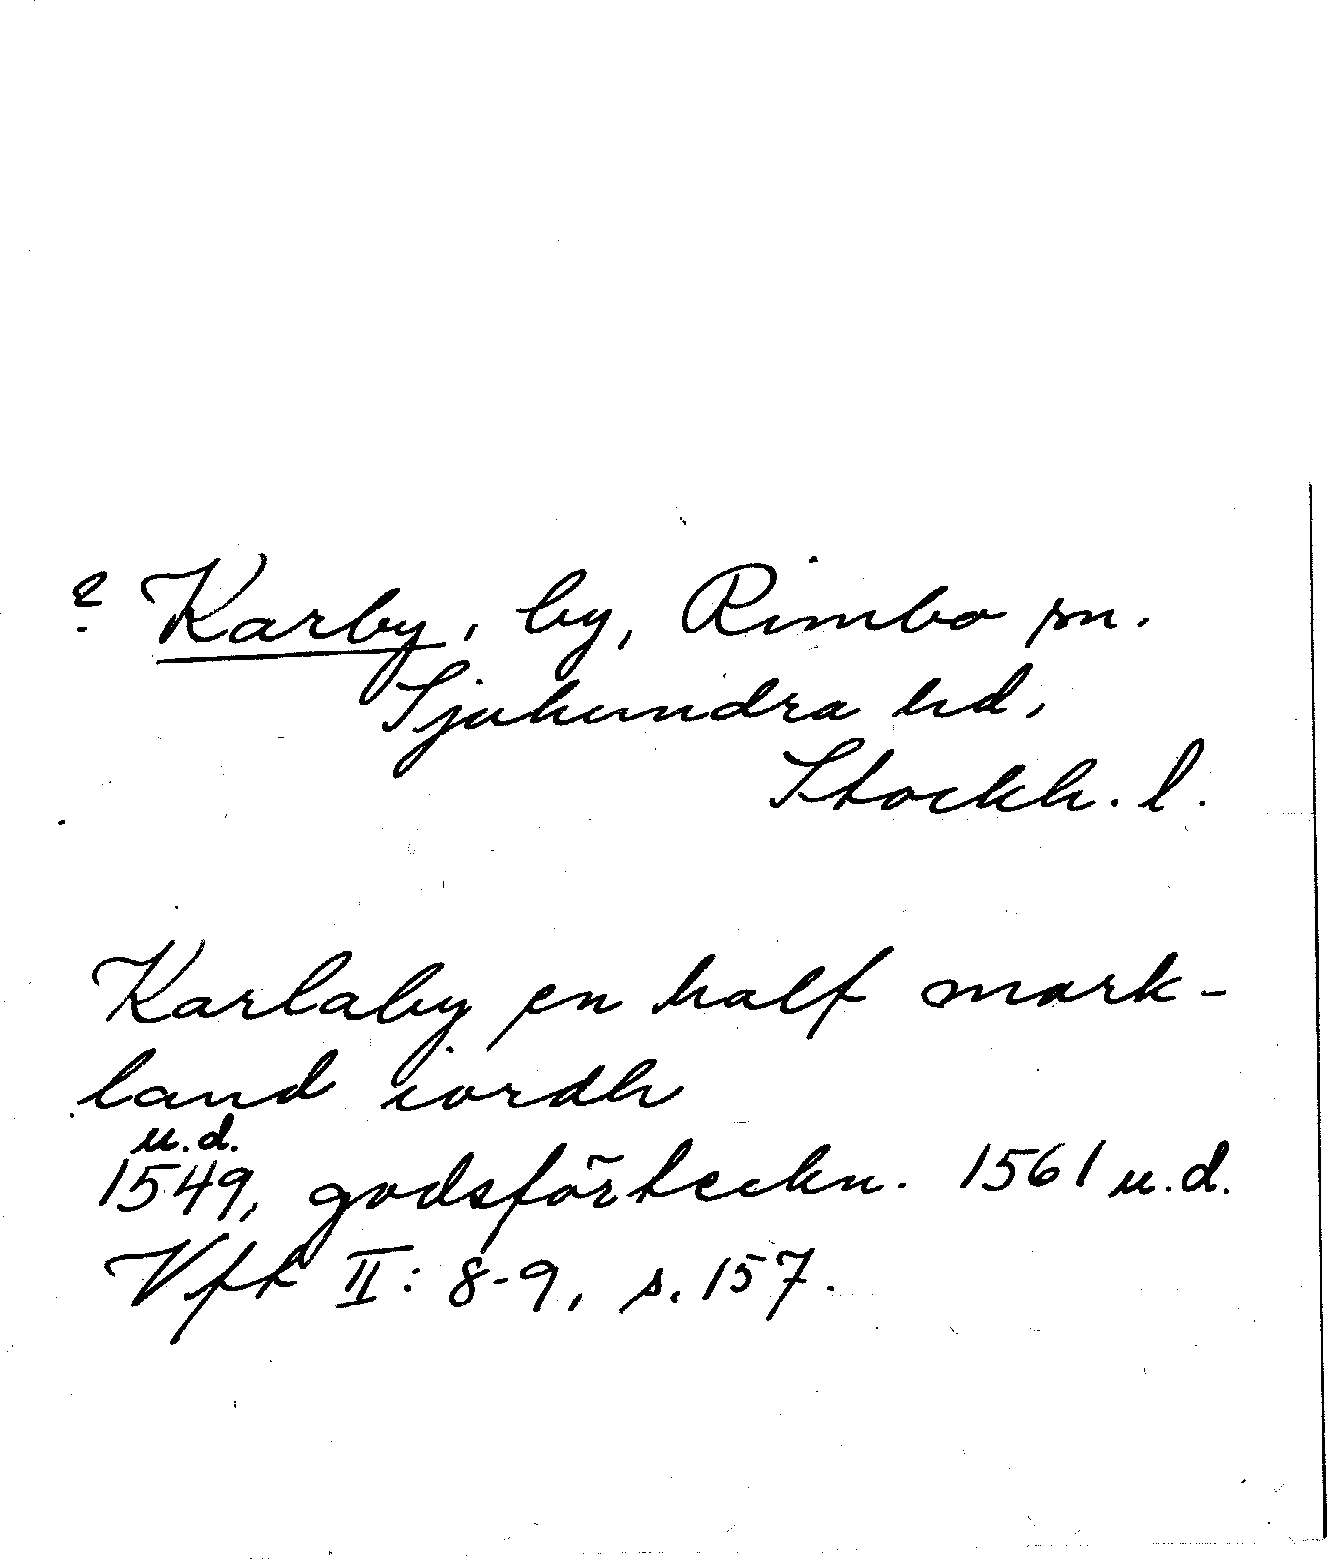 ? Karby, by, Rimbo sn.
Sjuhundra hd,
Stockh. l.
Karlaby en half mark-
land iordh
u.d.
1549, godsförteckn. 1561 u.d.
Vfk II: 8-9, s. 157.